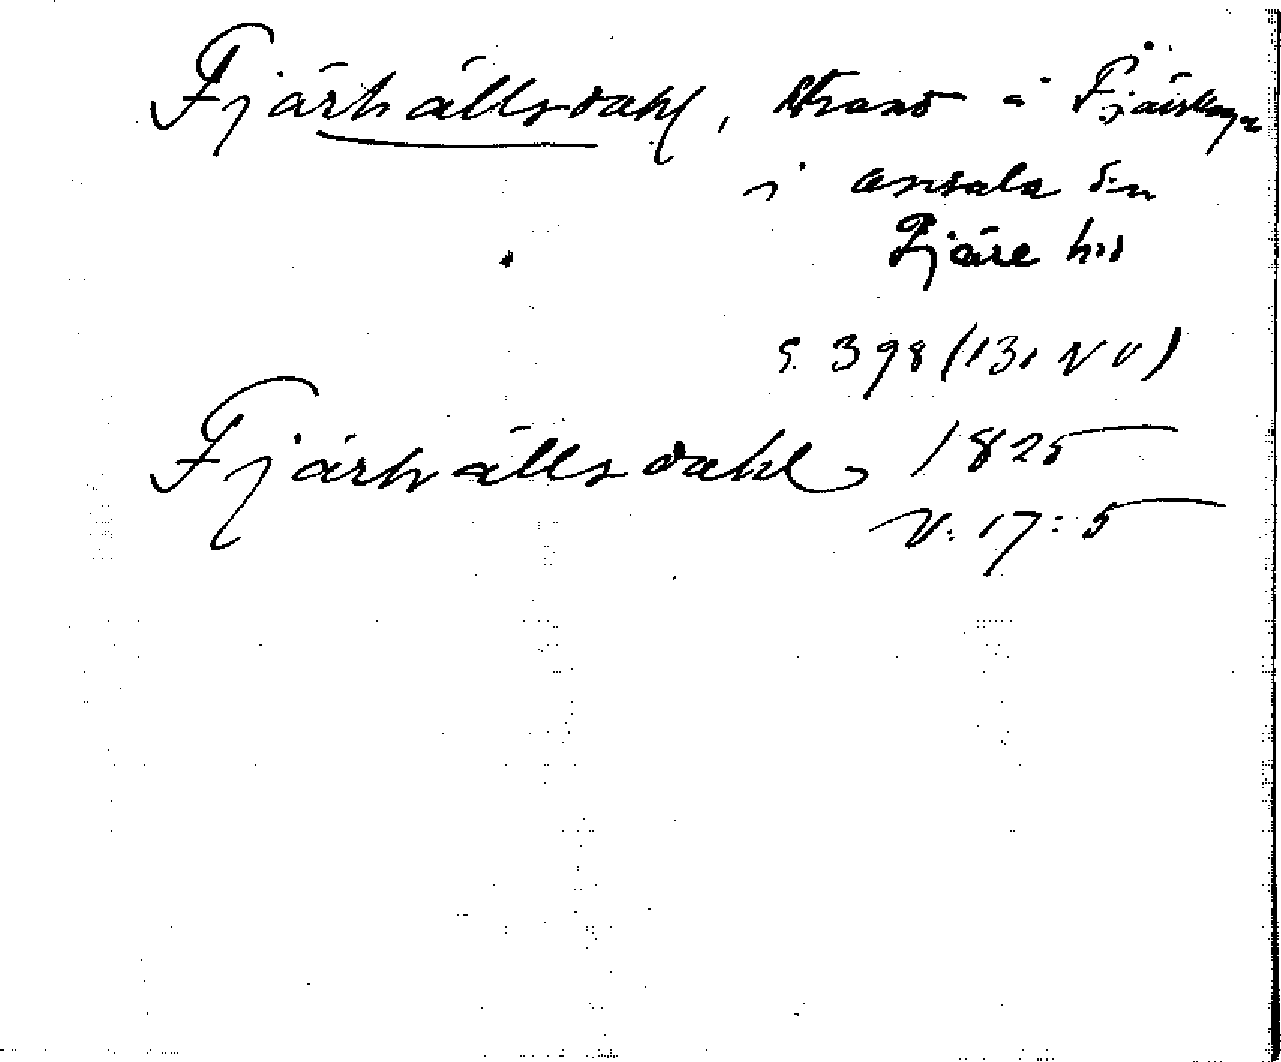 Fjärhällsdahl, strand å Fjärskogen
i onsala sn
Fjäre hd
S. 398 (131 NV)
Fjärhällsdahl 1825
V. 17:5